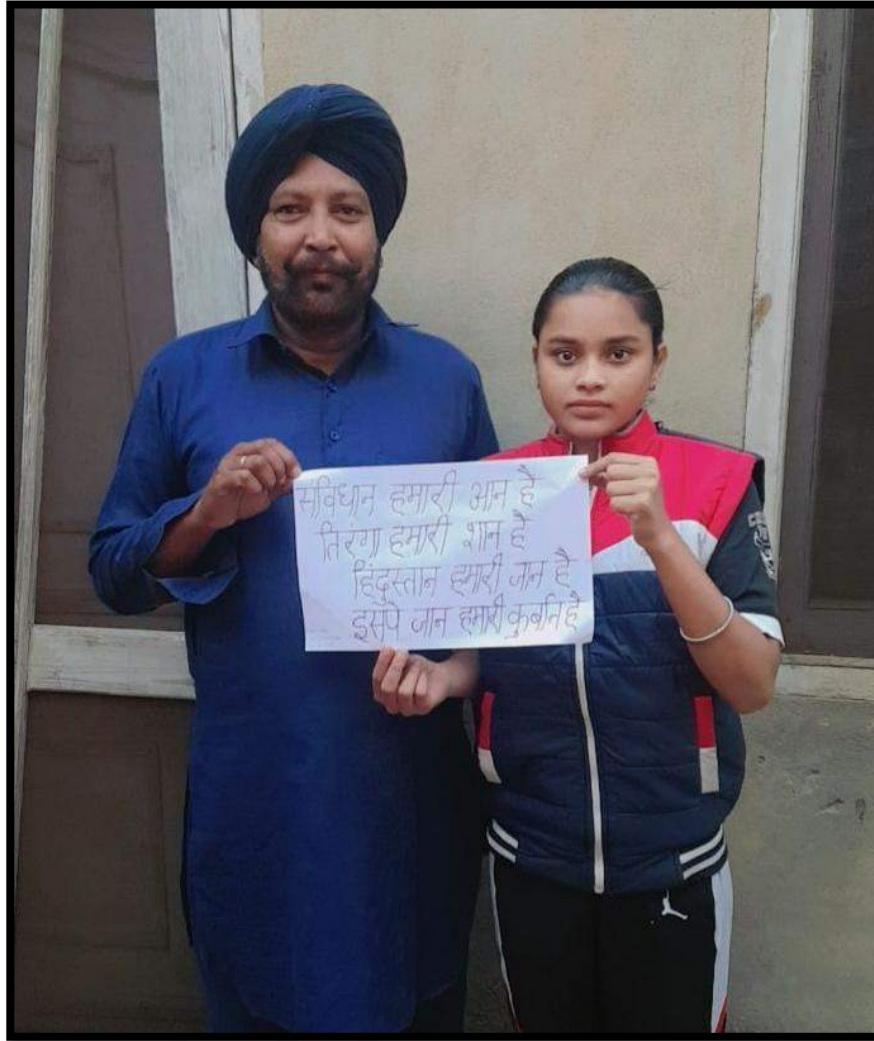 सविधान हमारी आन है
तिरंगा हमारी शान है
हिंदुस्तान हमारी जान है
इसपे जान हमारी कुर्बान है